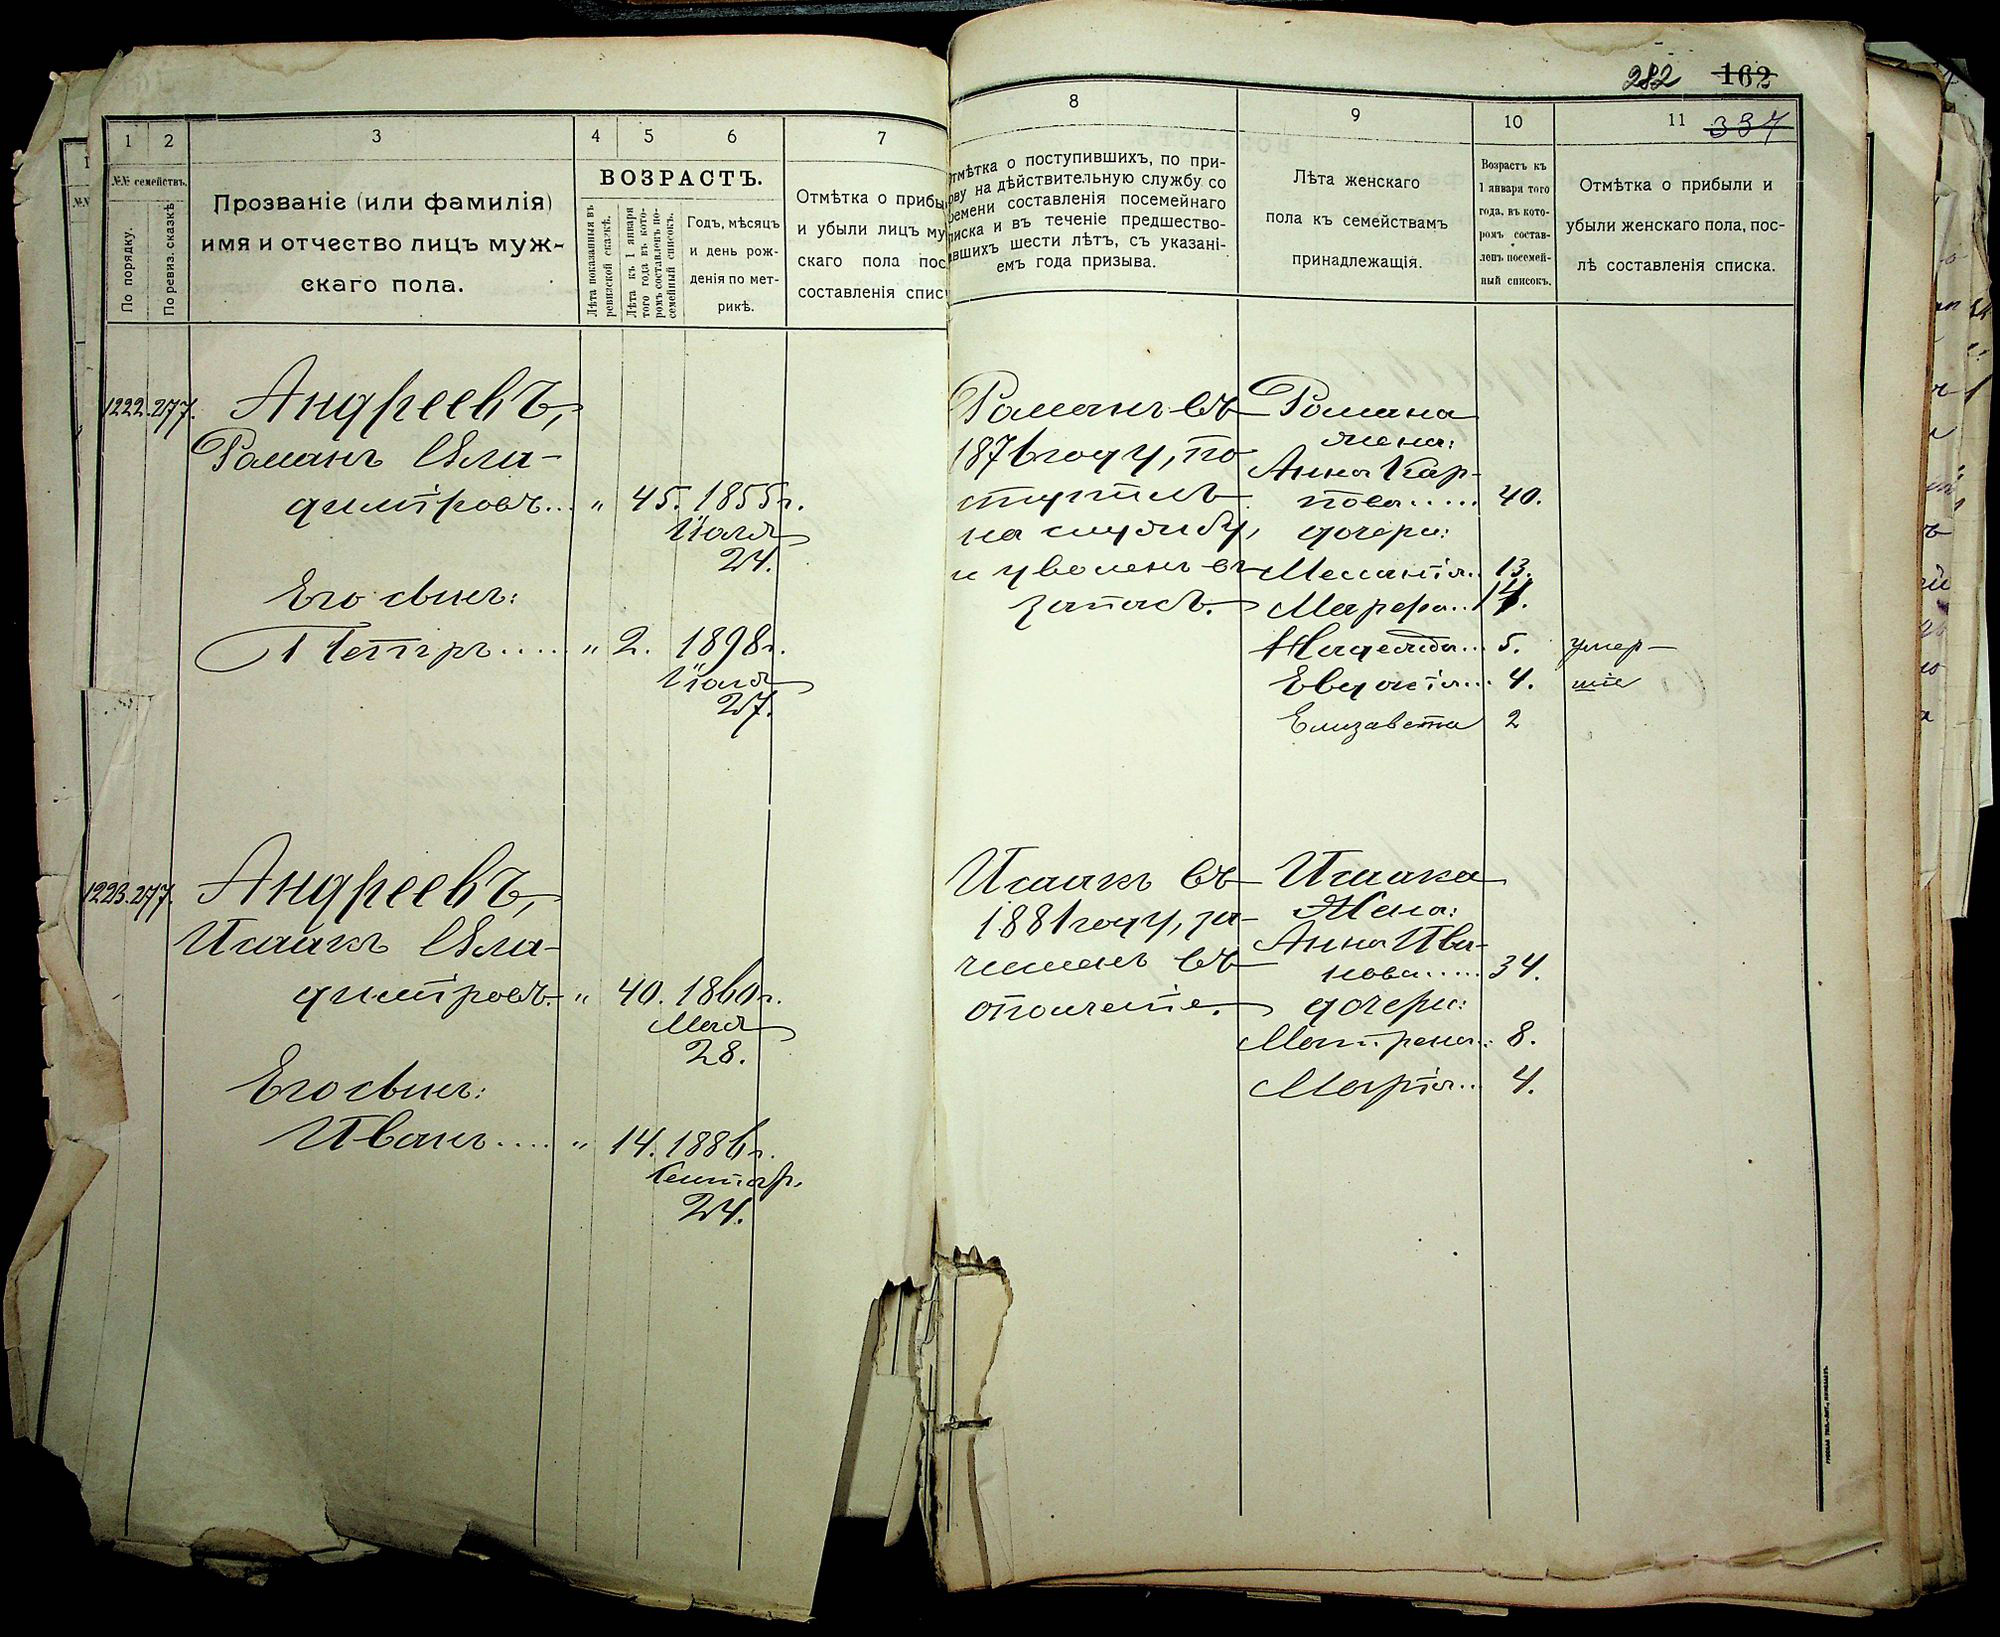 282 162
1 2 3 4 5 6 7
№№ семействъ.
По порядку.
По ревиз. сказкѣ
Прозваніе (или фамилія)
имя и отчество лицъ муж-
скаго пола.
ВОЗРАСТЪ.
Лѣта показанныя въ
ревизской сказкѣ.
Лѣта къ 1 января
того года въ кото-
ромъ составленъ по-
семейный списокъ.
Годъ, мѣсяцъ
и день рож-
денія по мет-
рикѣ.
Отмѣтка о прибы
и убыли лицъ му
скаго пола пос
составленія спис
8 9 10 11 337
Отмѣтка о поступившихъ, по при-
зыву на дѣйствительную службу со
времени составленія посемейнаго
списка и въ теченіе предшество-
вавшихъ шести лѣтъ, съ указані-
емъ года призыва.
Лѣта женскаго
пола къ семействамъ
принадлежащія.
Возрастъ къ
1 января того
года, въ кото-
ромъ состав-
ленъ посемей-
ный списокъ.
Отмѣтка о прибыли и
убыли женскаго пола, пос-
лѣ составленія списка.
1222. 277. Андреевъ,
Романъ Вла-
димiровъ... " 45. 1855 г.
Iюля
24.
Его сынъ:
Петръ..... " 2. 1898 г.
Iюля
27.
Романъ въ
1876 году, по
ступилъ
на службу,
и уволенъ въ
запасъ.
Романа
жена:
Анна Кар-
пова..... 40.
дочери:
Меланiя.. 13.
Марфа.. 14.
Надежда... 5. умер-
Евдокiя... 4. шiе
Елизавета 2
1223. 277. Андреевъ,
Исаакъ Вла-
димiровъ. " 40. 1860 г.
Мая
28.
Его сынъ:
Иванъ.... " 14. 1886 г.
Сентяр.
24.
Исаакъ въ
1881 году, за-
численъ въ
ополченiе.
Исаака
Жена:
Анна Ива-
нова..... 34.
дочери:
Матрена.. 8.
Марiя.. 4.